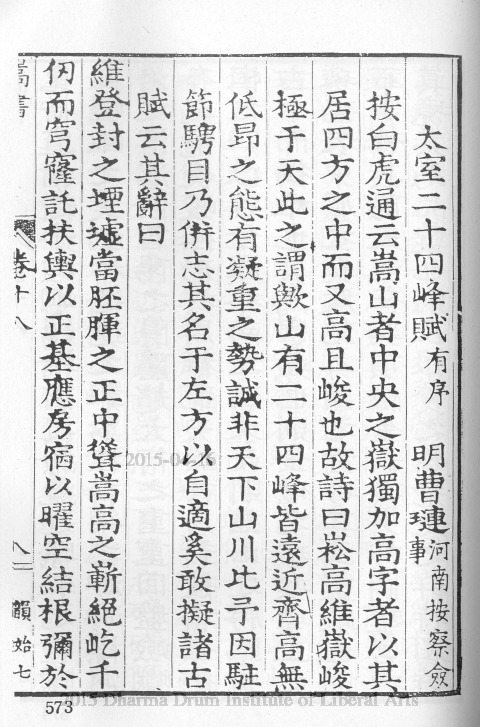 太室二十四峰賦有序　明曹璉河南按察僉事
按白虎通云嵩山者中央之嶽獨加高字者以其
居四方之中而又高且峻也故詩曰崧高維嶽峻
極于天此之謂歟山有二十四峰皆遠近齊高無
低昂之態有凝重之勢誠非天下山川比予因駐
節騁目乃併志其名于左方以自適奚敢擬諸古
賦云其辭曰
維登封之堙墟當胚腪之正中聳嵩高之嶄絕屹千
仞而穹窿託扶輿以正基應房宿以曜空結根彌於
嵩書　卷十八　八　韻始七
573
2015-04-16
2015 Dharma Drum Institute of Liberal Arts